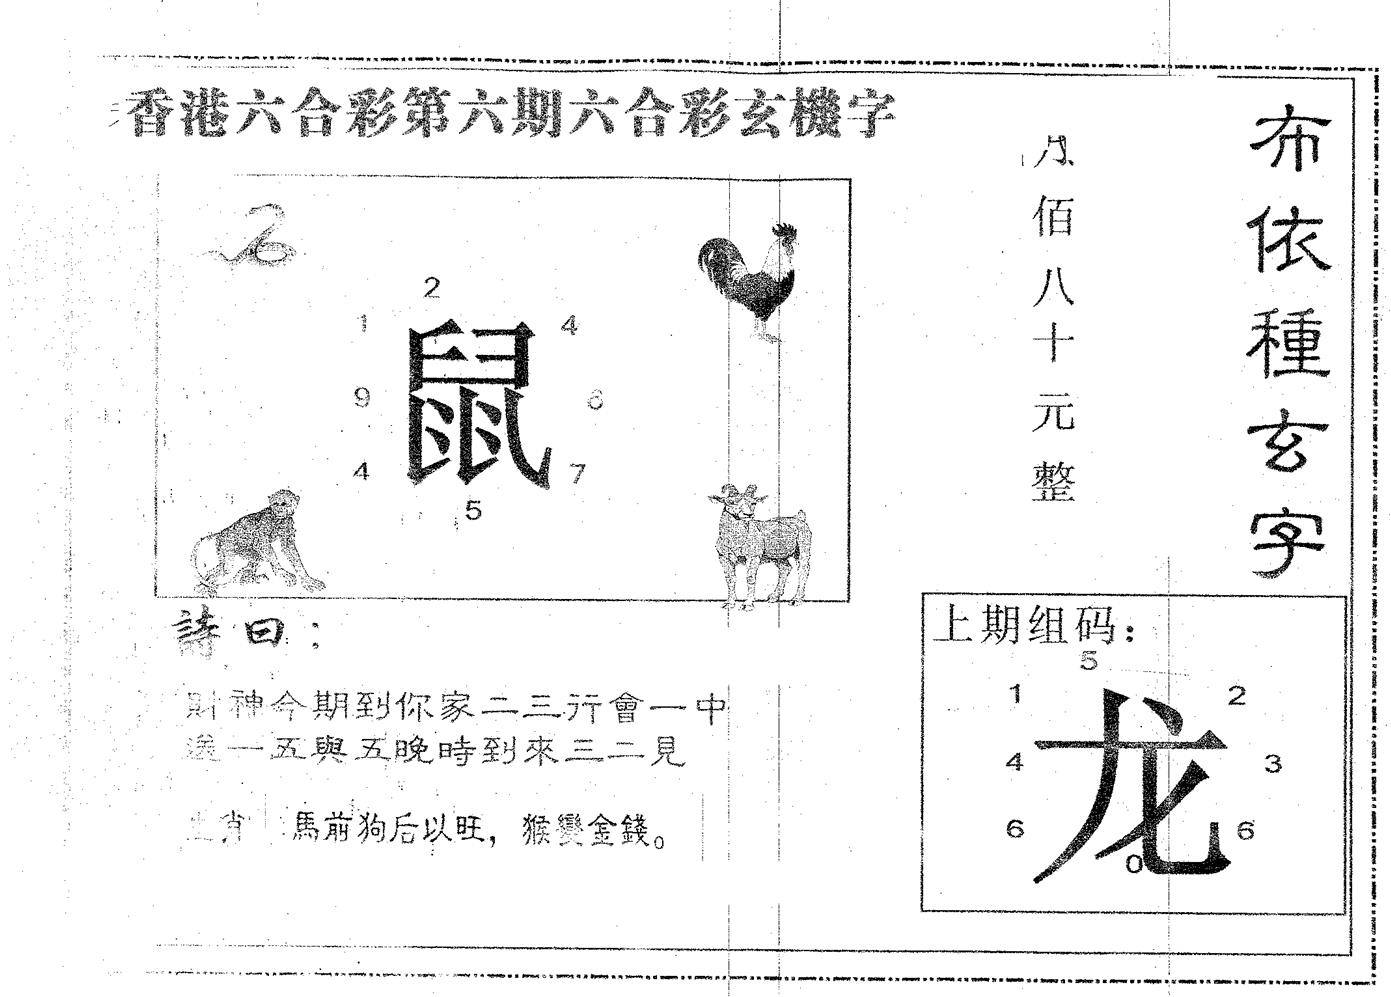 香港六合彩第六期六合彩玄機字
布依種玄字
佰八十元整
2
1 4
鼠
9 6
4 7
5
詩曰：
財神今期到你家二三行會一中
送一五與五晚時到來三二見
生肖 馬前狗后以旺，猴變金錢。
上期组码：
5
1 2
龙
4 3
6 6
0